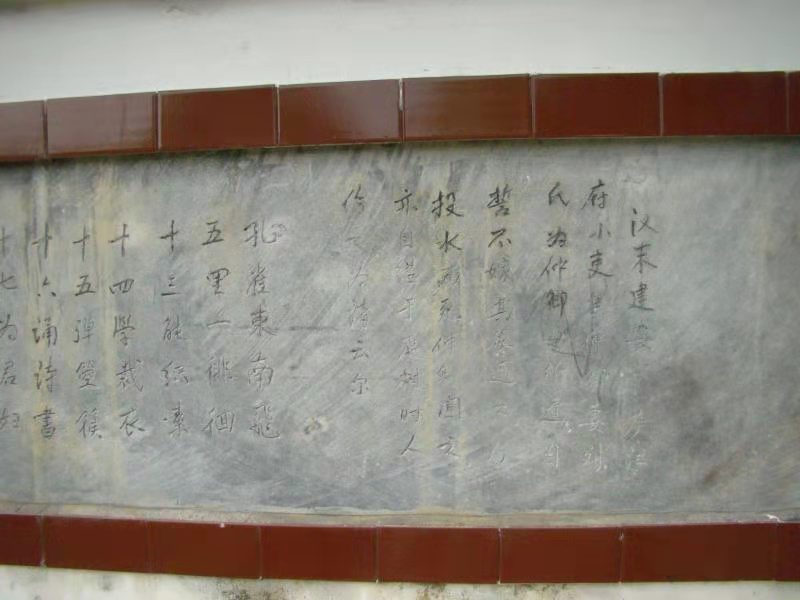 汉末建安
府小吏焦仲卿妻刘
氏为仲卿母所遣自
誓不嫁其家逼
投水而死仲卿闻之
亦自缢于庭树时人
为诗云尔
孔雀東南飛
五里一徘徊
十三能织素
十四學裁衣
十五弹箜篌
十六誦诗書
十七为君妇